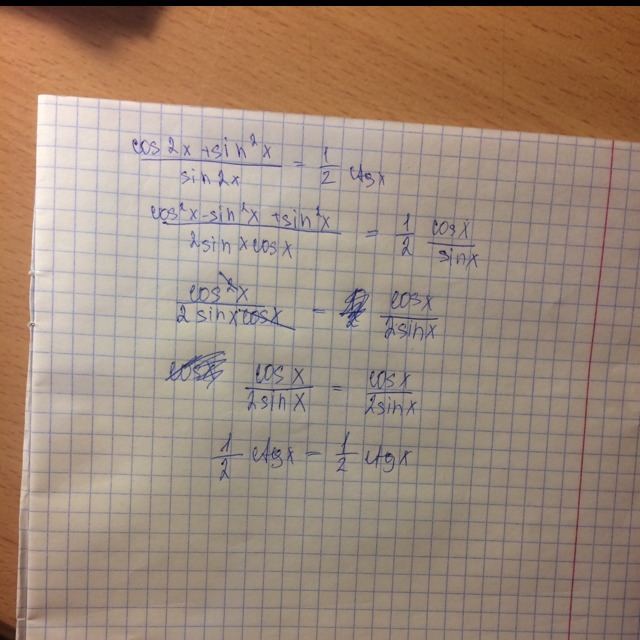 (cos 2x + sin²x)/(sin 2x) = 1/2 ctgx
(cos²x - sin²x + sin²x)/(2 sin x cos x) = 1/2 cosx/sinx
(cos²x)/(2 sinx cosx) = cosx/2sinx
cosx/2sinx = cosx/2sinx
1/2 ctgx = 1/2 ctgx